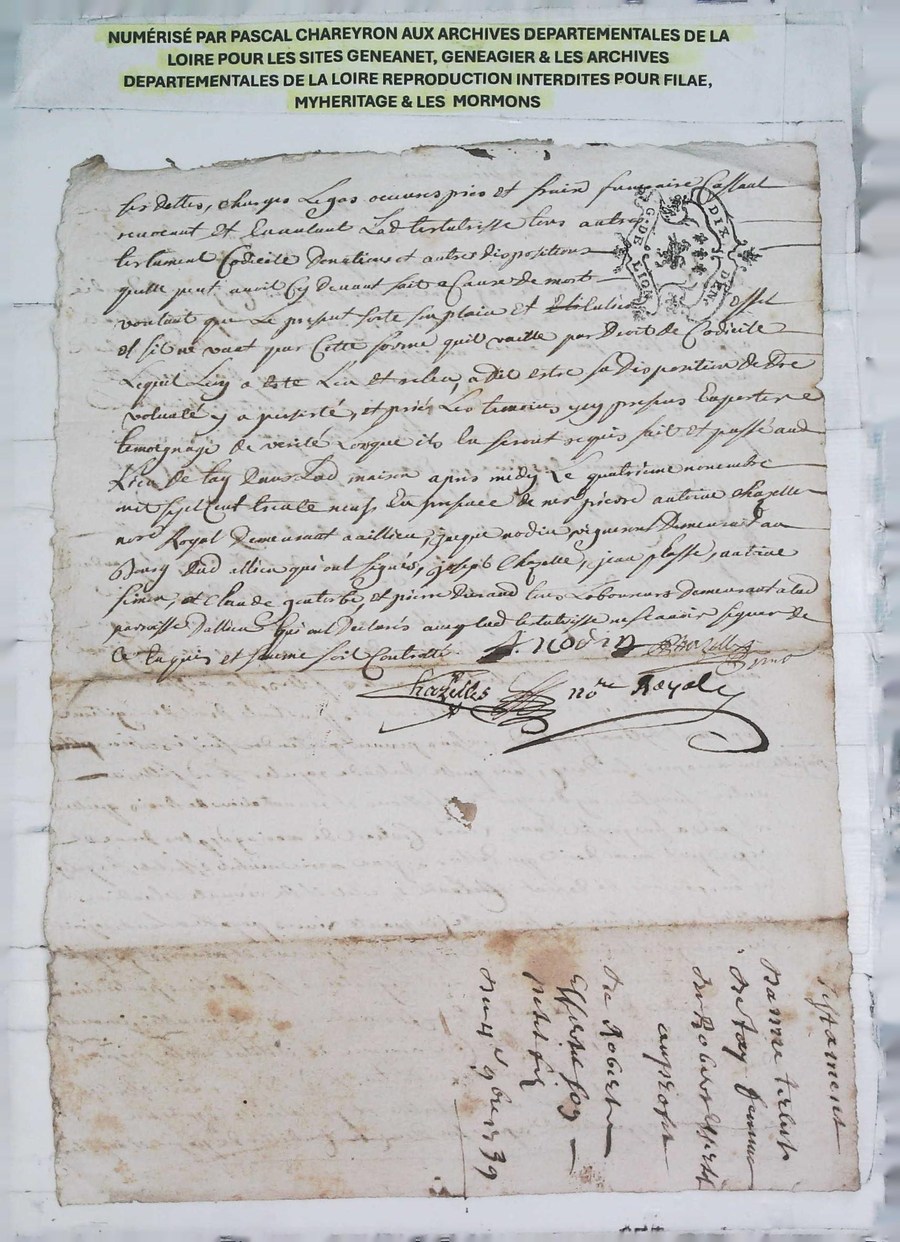 NUMÉRISÉ PAR PASCAL CHAREYRON AUX ARCHIVES DEPARTEMENTALES DE LA
LOIRE POUR LES SITES GENEANET, GENEAGIER & LES ARCHIVES
DEPARTEMENTALES DE LA LOIRE REPRODUCTION INTERDITES POUR FILAE,
MYHERITAGE & LES MORMONS
ses dettes, charges legas et frais funeraire Cassant
revocant et lad testatrisse tous autre
testament Codicile donations et autres dispositions
quelle peut avoir Cy devant fait a Cause de mort
voulant que Le present sorte son plain et effet
et sil ne vaut par Cette forme quil vaille par Droit de Codicile
Lequel Luy a este Leu et releu, a dit estre sa disposition de dre
volonté y a persisté, et priés Les temoins presens En porter
temoignage de verité Lorsque ils En seront requis fait et passé aud
Lieu de tay Dans Lad maison apres midy Le quatrieme novembre
mil sept Cent trente neuf En presance de me pierre antoine Chazelles
nore Royal Demeurant a aillieu, jacque nodin vigneron Demeurant au
Bourg Dud allieu qui ont signés, joseph Chazelle, jean plasse, antoine
simon, et Claude et pierre Durand tous Laboureurs Demeurant a lad
parroisse Dallieu qui ont Declarés ainsy lad testatrisse ne scavoir signer de
Ce Enquis et somme soit Controllé
J. nodin
Chazelles nore Royal
G. DE LION
DIX DEN.
testament
de tay femme
de Robert
au proffit
de Robert
petit fils
du 4e 9bre 1739